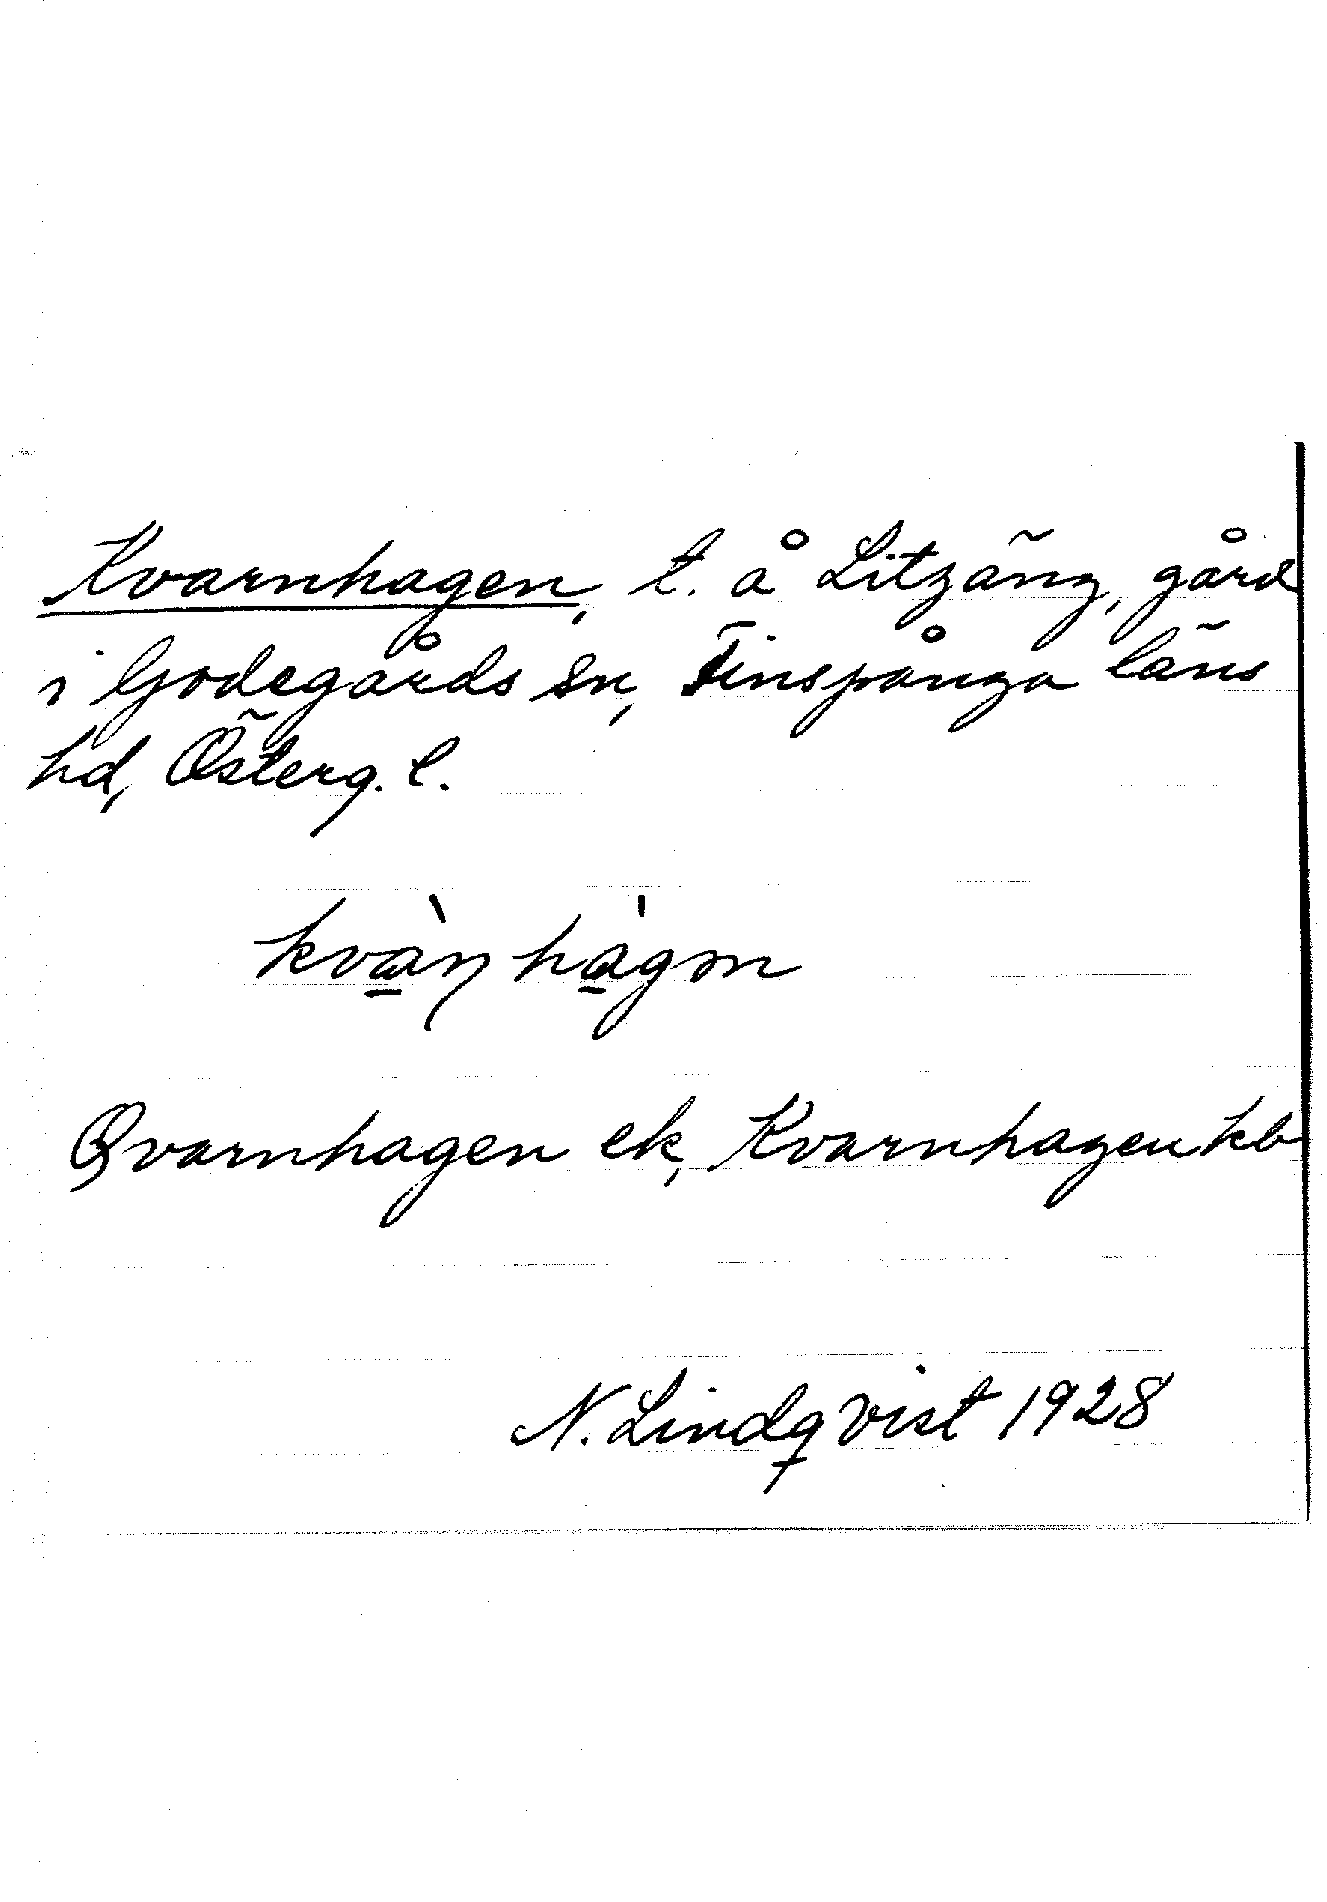 Kvarnhagen, t. å Litzäng, gård
i Godegårds sn, Finspånga läns
hd, Österg. l.
kvàn̨ hàgən
Qvarnhagen ek, Kvarnhagen kb
N. Lindqvist 1928